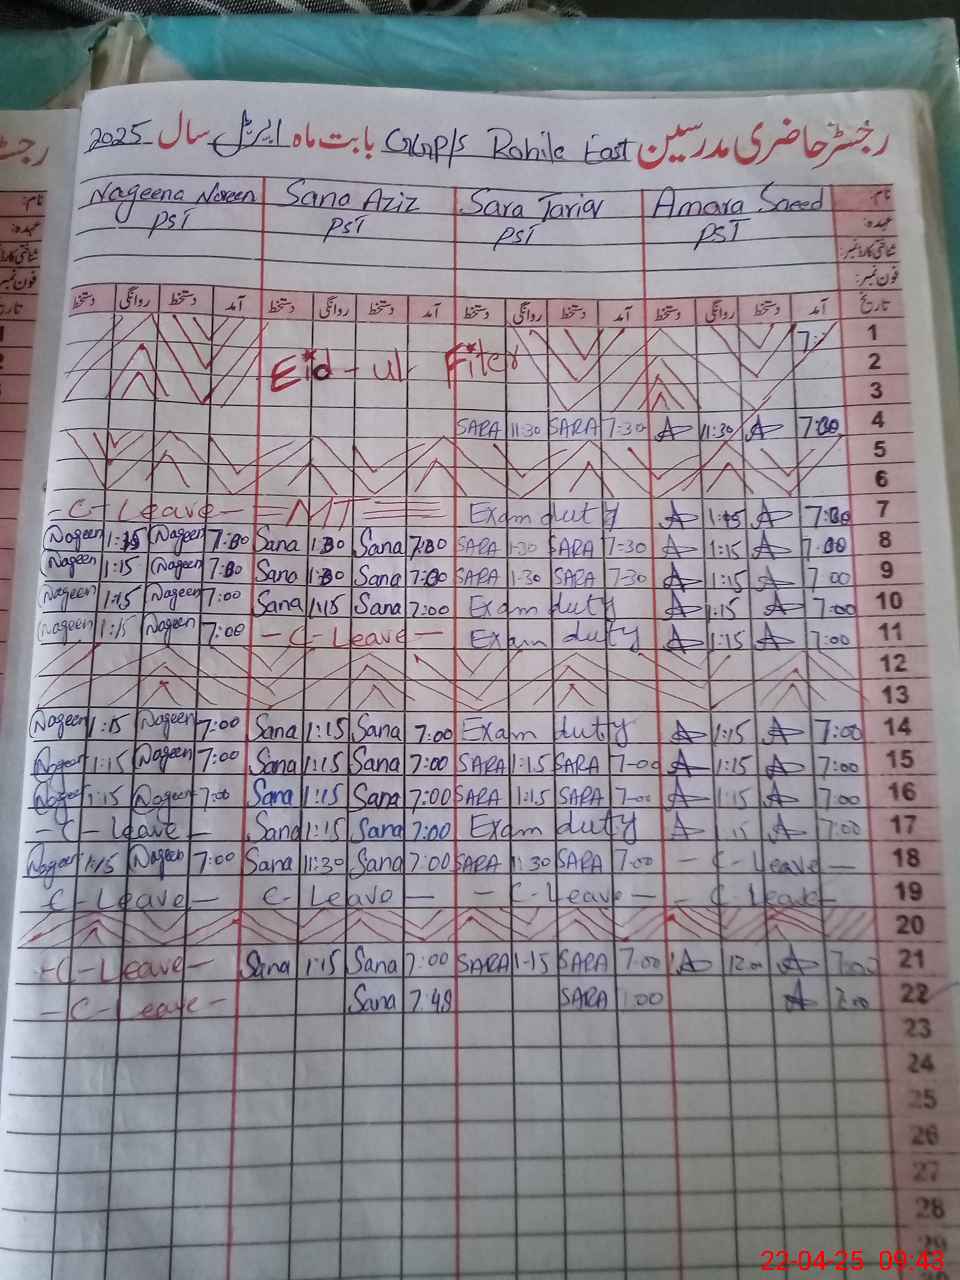 رجسٹر حاضری مدرسین GGP/S Rohila East بابت ماہ اپریل سال 2025
نام: Amara Saeed Sara Tariq Sana Aziz Nageena Noreen
عہدہ: PST PST PST PST
شناختی کارڈ نمبر:
فون نمبر:
تاریخ آمد دستخط روانگی دستخط آمد دستخط روانگی دستخط آمد دستخط روانگی دستخط آمد دستخط روانگی دستخط
1
Eid-ul-Fiter 2
3
SARA 11:30 SARA 7-30 A 11:30 A 7:30 4
5
6
-C-Leave- MT Exam duty A 1:15 A 7:00 7
Nageen 1:15 Nageen 7:30 Sana 1:30 Sana 7:30 SARA 1-30 SARA 7-30 A 1:15 A 7:00 8
Nageen 1:15 Nageen 7:30 Sana 1:30 Sana 7:00 SARA 1-30 SARA 7-30 A 1:15 A 7 00 9
Nageen 1:15 Nageen 7:00 Sana 1:15 Sana 7:00 Exam duty A 1:15 A 7:00 10
Nageen 1:15 Nageen 7:00 -C-Leave- Exam duty A 1:15 A 7:00 11
12
13
Nageen 1:15 Nageen 7:00 Sana 1:15 Sana 7:00 Exam duty A 1:15 A 7:00 14
Nageen 1:15 Nageen 7:00 Sana 1:15 Sana 7:00 SARA 1:15 SARA 7-00 A 1:15 A 7:00 15
Nageen 1:15 Nageen 7:00 Sana 1:15 Sana 7:00 SARA 1:15 SARA 7-00 A 1:15 A 7:00 16
-C-Leave- Sana 1:15 Sana 7:00 Exam duty A 15 A 7:00 17
Nageen 1:15 Nageen 7:00 Sana 11:30 Sana 7:00 SARA 11 30 SARA 7-00 -C-Leave- 18
-C-Leave- C-Leave- -C-Leave- -C-Leave- 19
20
-C-Leave- Sana 1:15 Sana 7:00 SARA 1-15 SARA 7:00 A 12:00 A 7:00 21
-C-Leave- Sana 7:48 SARA :00 A 7:00 22
23
24
25
26
27
28
29
22-04-25 09:43